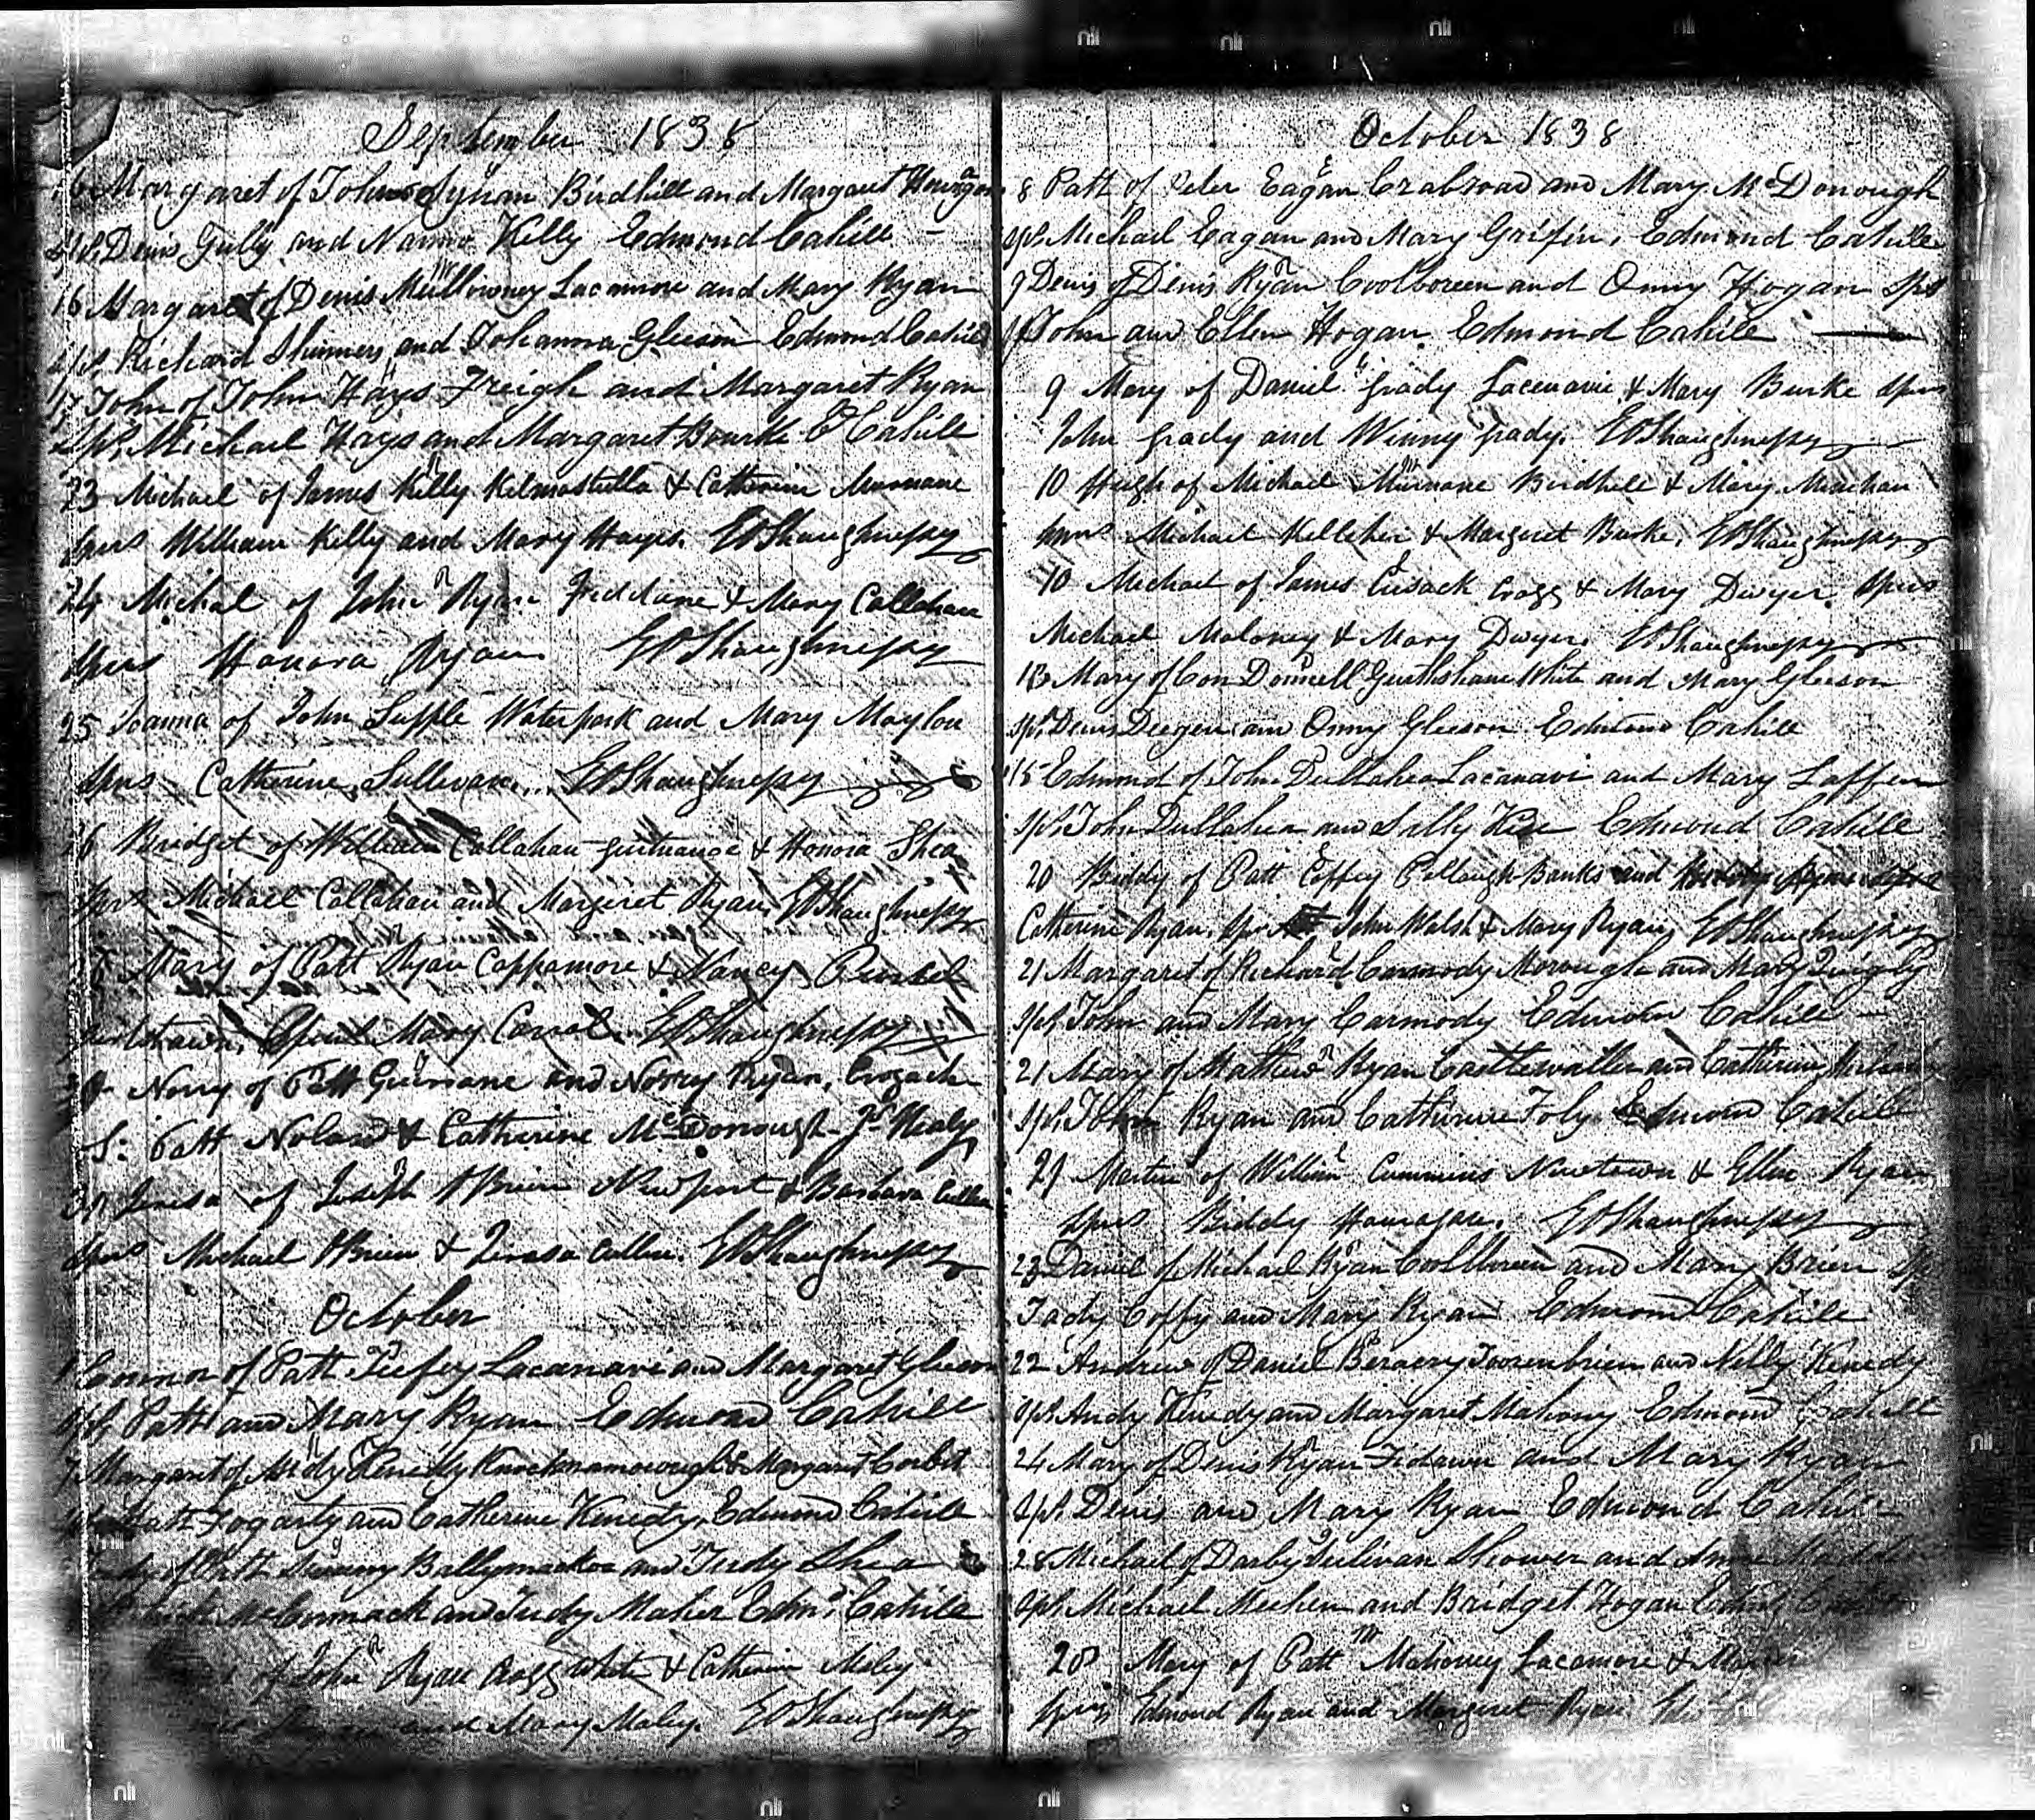 September 1838
16 Margaret of John Birdhill and Margaret
Sps Denis Gully and Nanno Kelly Edmond Cahill
16 Margaret of Denis Mullowney Lacamore and Mary Ryan
Sps Richard Skinners and Johanna Gleeson Edmond Cahill
17 John of John Hays Freigh and Margaret Ryan
Sps Michael Hays and Margaret Bourke E Cahill
23 Michael of James Kelly Kilmastulla & Catherine Murnane
Spns William Kelly and Mary Hayes. EOShaughnessy
24 Michal of John Ryan Fiddane & Mary Callahan
Spns Honora Ryan EOShaughnessy
25 Joanna of John Supple Waterpark and Mary Moylon
Spns Catherine Sullivan... EOShaughnessy
26 Bridget of William Callahan & Honora Shea
Spns Michael Callahan and Margaret Ryan EOShaughnessy
Mary of Patt Ryan Cappamore & Nancy
Spns Mary Carrol. EOShaughnessy
Norry of Patt Guinane and Norry Ryan,
S: Patt Nolan & Catherine McDonough Js Healy
of Joseph OBrien Newport & Barbara Cullen
Spns Michael OBrien & Teresa Cullen. EOShaughnessy
October
1 Connor of Patt Lacanavi and Margaret Gleeson
Sps Patt and Mary Ryan Edmond Cahill
7 Margaret of Andy Kenedy & Margaret Corbit
Sps Patt Fogarty and Catherine Kenedy, Edmond Cahill
of Patt Ballymackee and Judy Shea
McCormack and Judy Maher Edmd Cahill
of John Ryan Cragg White & Catherine Maley
and Mary Maley. EOShaughnessy
October 1838
8 Patt of Peter Eagan Crabroad and Mary McDonough
Sps Michael Eagan and Mary Grifin, Edmond Cahill
9 Denis of Denis Ryan Coolboreen and Onny Hogan Sps
John and Ellen Hogan. Edmond Cahill
9 Mary of Daniel Grady Lacenavie & Mary Burke Spns
John Grady and Winny Grady. EOShaughnessy
10 Hugh of Michael Murnane Birdhill & Mary Meehan
Spns Michael Kelleher & Margaret Burke, EOShaughnessy
10 Michael of James Cusack Cragg & Mary Dwyer. Spns
Michael Moloney & Mary Dwyer. EOShaughnessy
13 Mary of Con Donnell White and Mary Gleeson
Sps Denis Deegen and Onny Gleeson Edmond Cahill
15 Edmond of John Dullahea Lacanavi and Mary Laffen
Sps John Dullahea and Sally Edmond Cahill
20 Biddy of Patt Coffey Banks and
Catherine Ryan. Spns John Walsh & Mary Ryan, EOShaughnessy
21 Margaret of Richard Carmody Morough and Mary Quigly
Sps John and Mary Carmody Edmond Cahill
21 Mary of Mathew Ryan Castlewaller and Catherine
Sps John Ryan and Catherine Foly Edmond Cahill
21 Martin of William Cummins Newtown & Ellen Ryan
Spns Biddy Hourigan. EOShaughnessy
23 Daniel of Michael Ryan Coolboreen and Mary Brien Sps
Tady Coffy and Mary Ryan Edmond Cahill
22 Andrew of Daniel Toorenbrien and Nelly Kenedy
Sps Andy Kenedy and Margaret Mahony Edmond Cahill
24 Mary of Denis Ryan Fidawn and Mary Ryan
Sps Denis and Mary Ryan Edmond Cahill
28 Michael of Darby Sulivan Shower and Anne
Sps Michael Meehen and Bridget Hogan Edmd
28 Mary of Patt Mahoney Lacamore &
Spns Edmond Ryan and Margaret Ryan